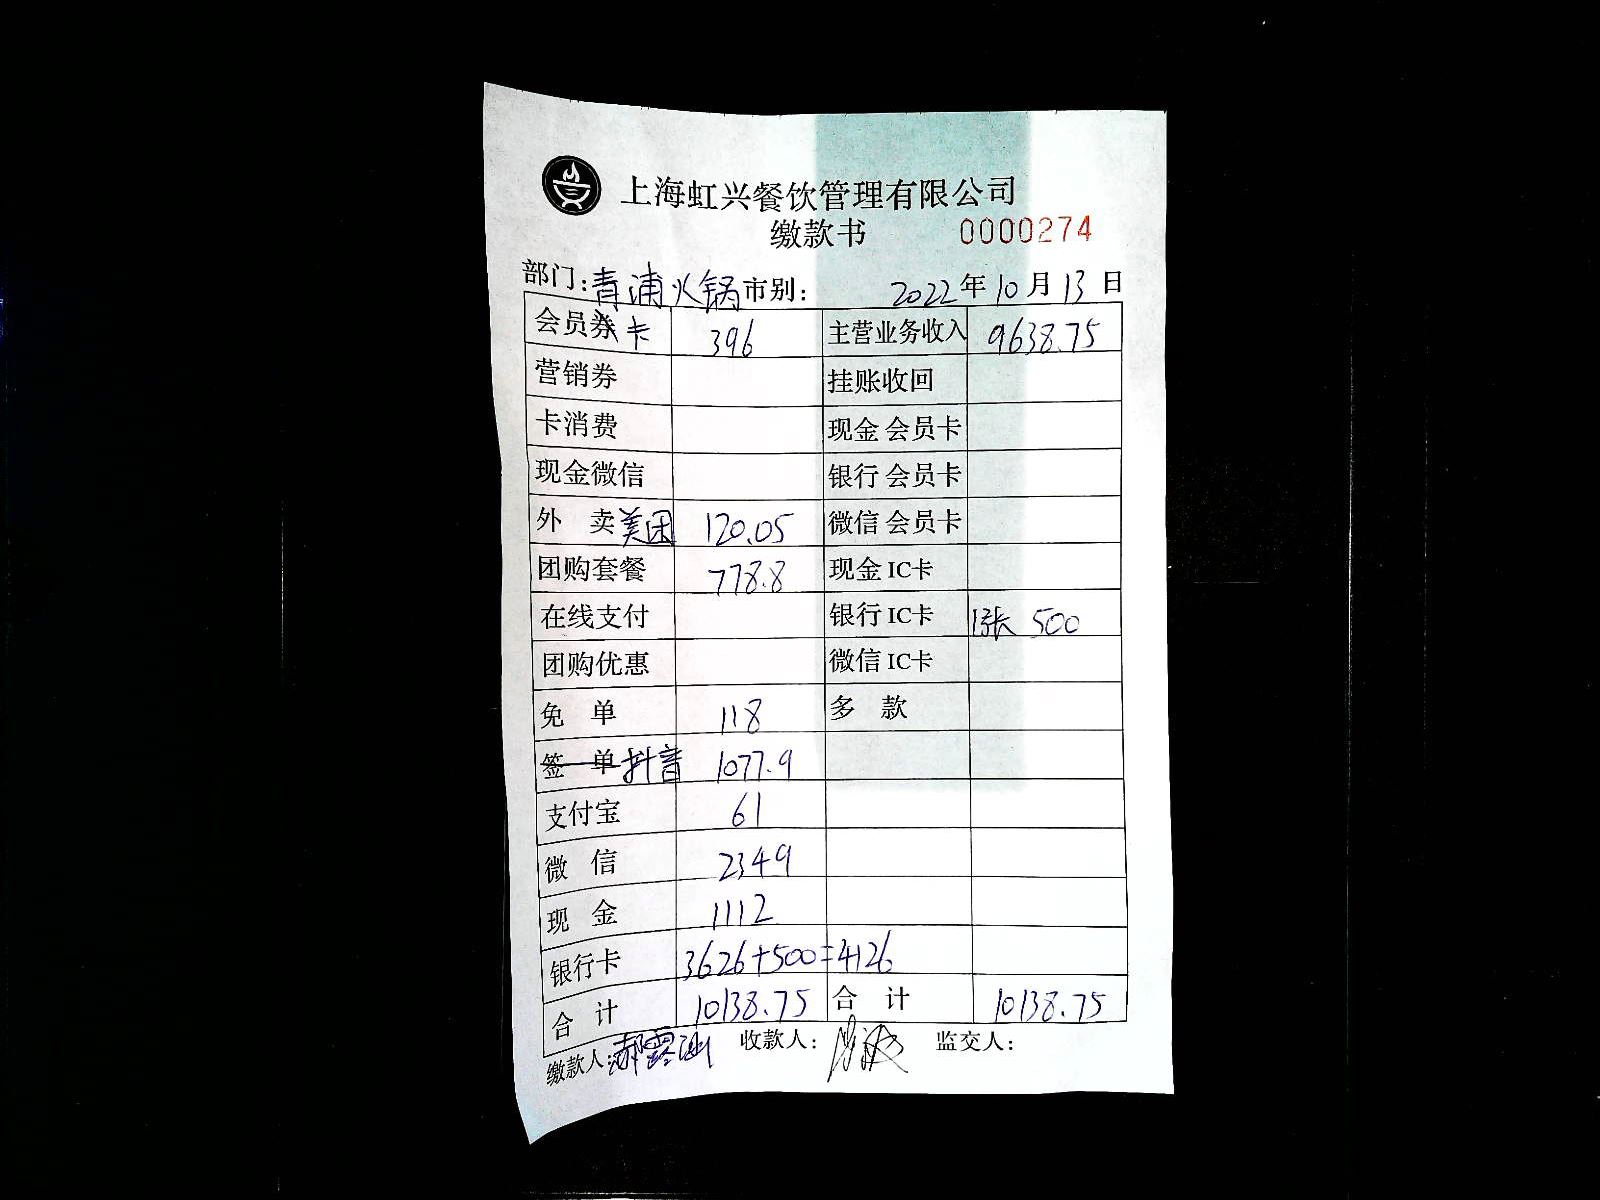 上海虹兴餐饮管理有限公司
缴款书 0000274
部门:青浦火锅 市别: 2022年10月13日
会员券卡 396 主营业务收入 9638.75
营销券 挂账收回
卡消费 现金 会员卡
现金微信 银行 会员卡
外 卖美团 120.05 微信 会员卡
团购套餐 778.8 现金 IC卡
在线支付 银行 IC卡 1张 500
团购优惠 微信 IC卡
免 单 118 多 款
签 单 抖音 1077.9
支付宝 61
微 信 2349
现 金 1112
银行卡 3626+500=4126
合 计 10138.75 合 计 10138.75
缴款人: 收款人: 监交人: